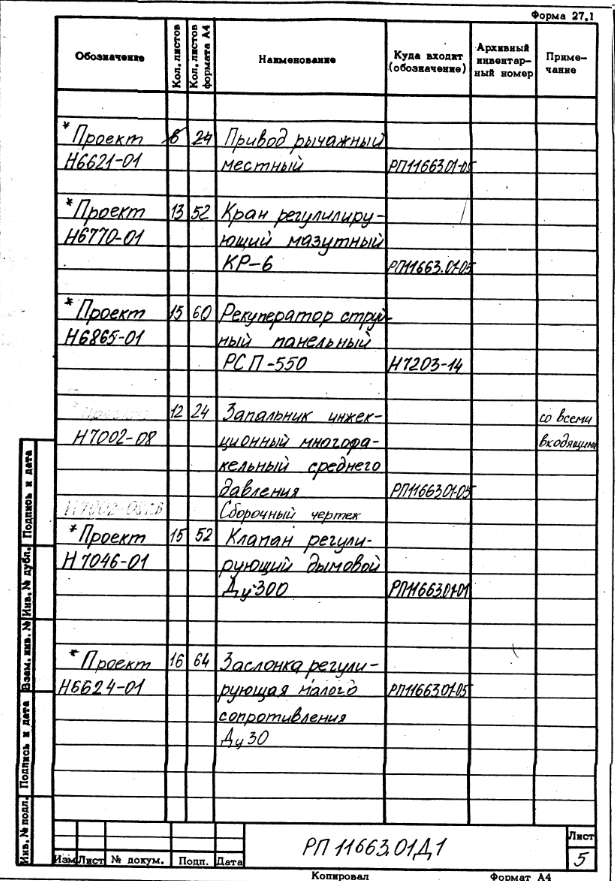 Форма 27.1
Обозначение Кол. листов Кол. листов формата А4 Наименование Куда входит (обозначение) Архивный инвентарный номер Примечание
* Проект 6 24 Привод рычажный
Н6621-01 местный РП11663.01-05
* Проект 13 52 Кран регулилирую-
Н6770-01 ющий мазутный
КР-6 РП11663.01-05
* Проект 15 60 Рекуператор струй-
Н6865-01 ный панельный
РСП-550 Н7203-14
12 24 Запальник инжек- со всеми
Н7002-08 ционный многофа- входящими
кельный среднего
давления РП11663.01-05
Сборочный чертеж
* Проект 15 52 Клапан регули-
Н7046-01 рующий дымовой
Ду-300 РП11663.01-01
* Проект 16 64 Заслонка регули-
Н6624-01 рующая малого РП11663.01-05
сопротивления
Ду 30
Инв. № подл. Подпись и дата Взам. инв. № Инв. № дубл. Подпись и дата
РП 11663.01Д1
Лист
5
Изм Лист № докум. Подп. Дата
Копировал Формат А4